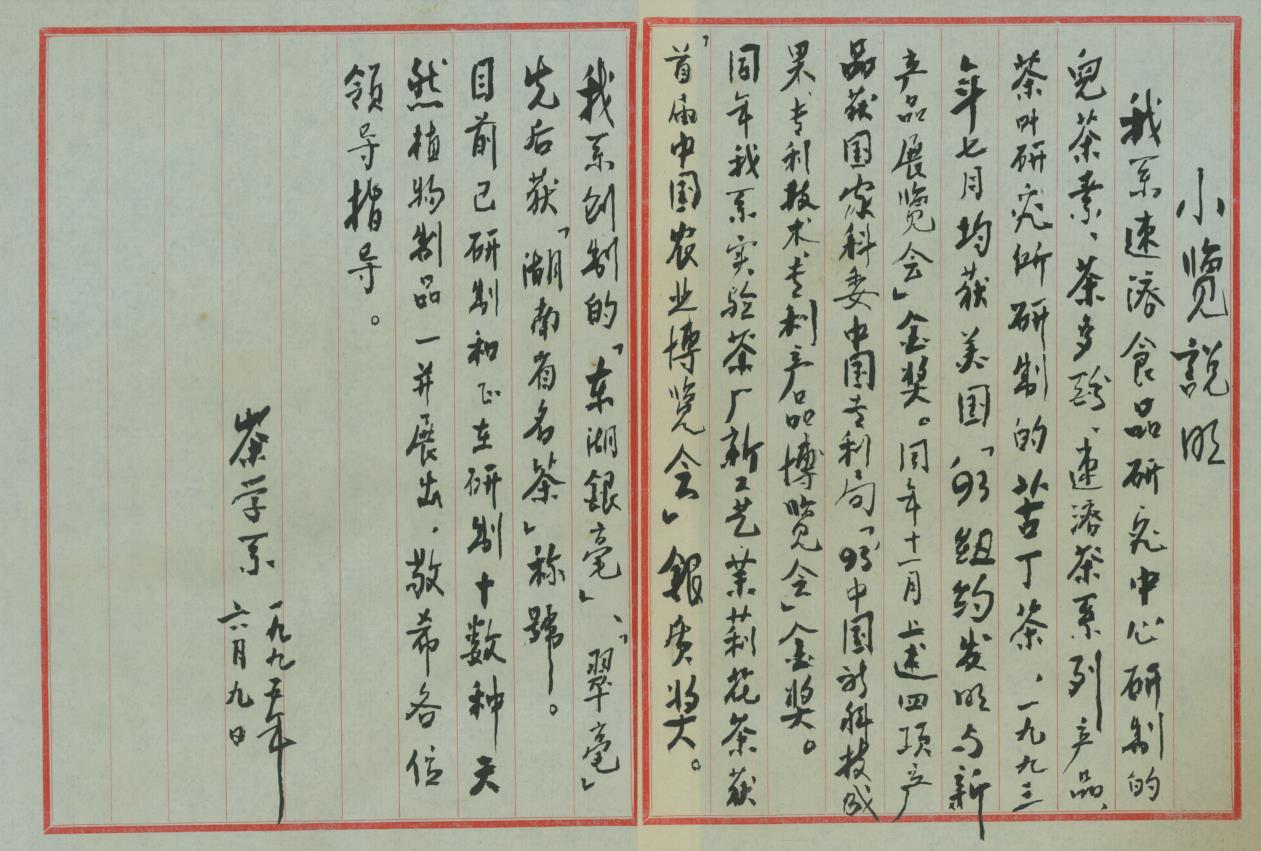 小览説明
我系速溶食品研究中心研制的
儿茶素、茶多酚、速溶茶系列产品、
茶叶研究所研制的苦丁茶，一九九三
年七月均获美国「93纽约发明与新
产品展览会」金奖。同年十一月上述四项产
品获国家科委中国专利局「93中国新科技成
果、专利技术、专利产品博览会」金奖。
同年我系实验茶厂新工艺茉莉花茶获
「首届中国农业博览会」银质奖。
我系创制的「东湖銀毫」、「翠毫」
先后获「湖南省名茶」称號。
目前已研制和正在研制十数种天
然植物制品一并展出，敬希各位
領导指导。
茶学系
一九九五年
六月九日